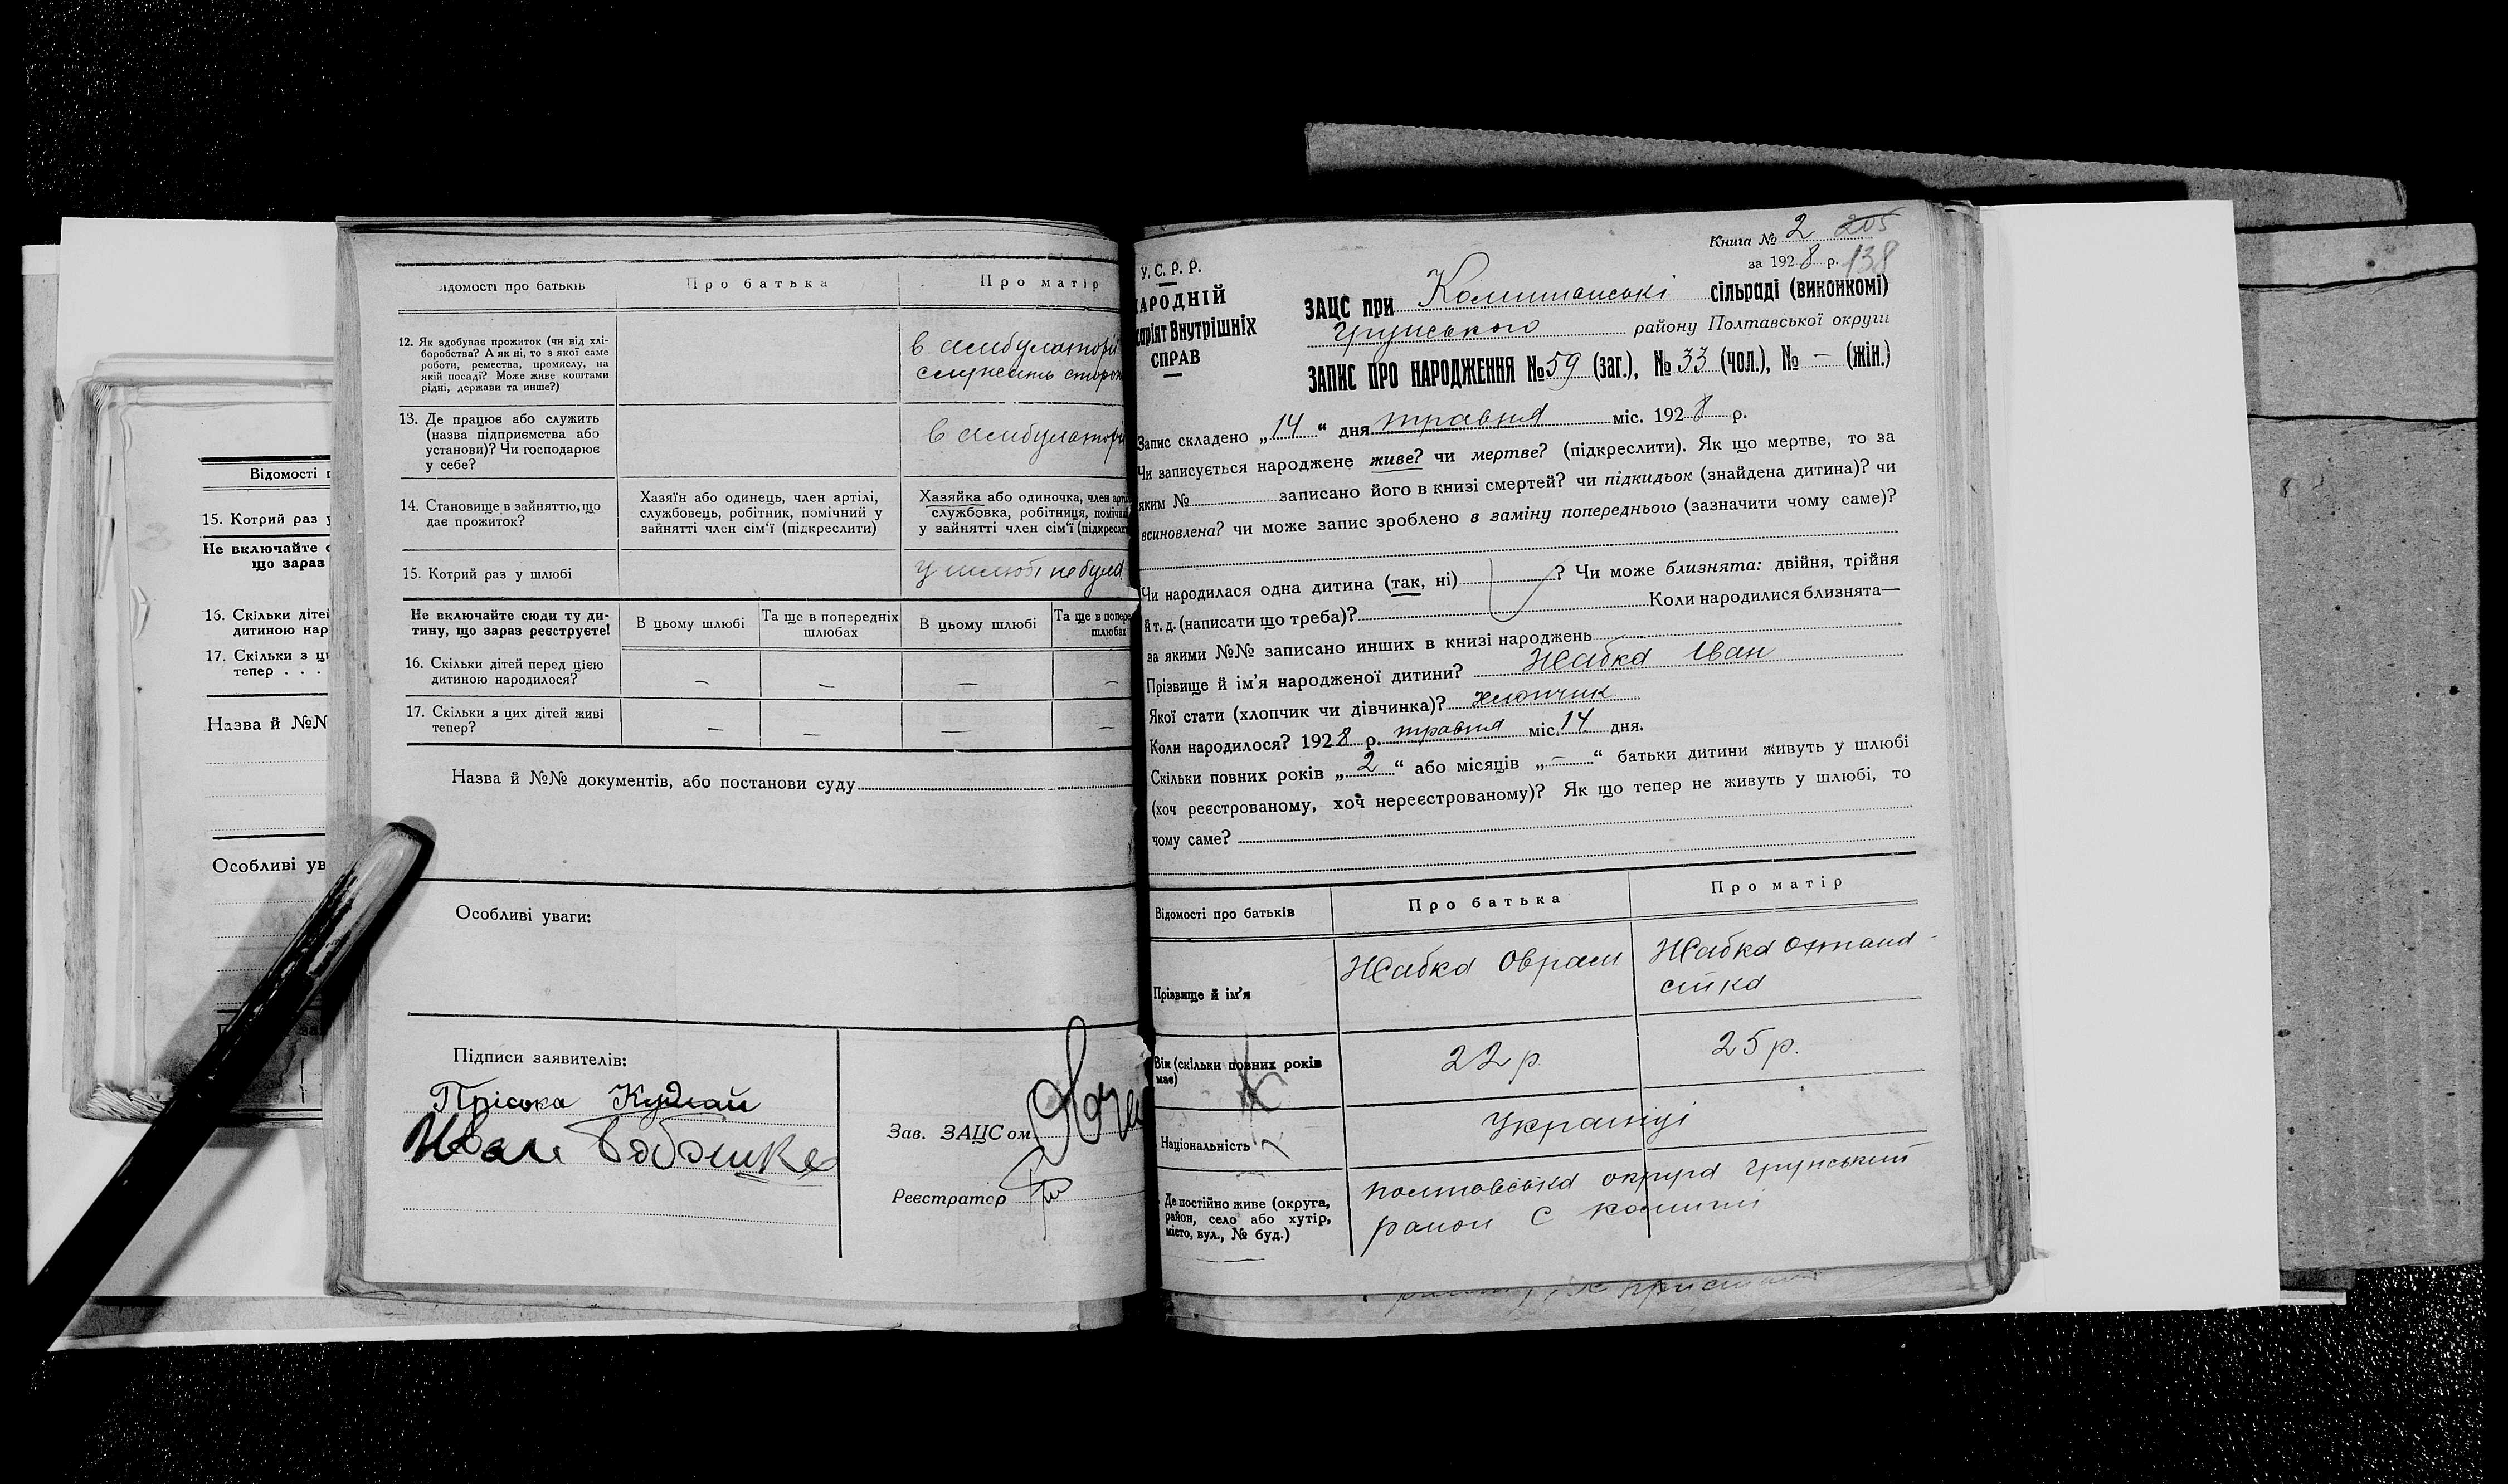 Відомості
15. Котрий раз у
Не включайте
що зараз
16. Скільки діте
дитиною нар
17. Скільки з
тепер . . .
Назва й №№
Особливі ув
Відомості про батьків
Про батька
Про матір
12. Як здобуває прожиток (чи від хлі-
боробства? А як ні, то з якої саме
роботи, ремества, промислу, на
якій посаді? Може живе коштами
рідні, держави та инше?)
в амбулаторії
служить сторож
13. Де працює або служить
(назва підприємства або
установи)? Чи господарює
у себе?
в амбулаторі
14. Становище в зайняттю, що
дає прожиток?
Хазяїн або одинець, член артілі,
службовець, робітник, помічний у
зайнятті член сім'ї (підкреслити)
Хазяйка або одиночка, член арті
службовка, робітниця, поміч
у зайнятті член сім'ї (підкресли
15. Котрий раз у шлюбі
у шлюбі не була
Не включайте сюди ту ди-
тину, що зараз реєструєте!
В цьому шлюбі
Та ще в попередніх
шлюбах
В цьому шлюбі
Та ще в попере
шлюбах
16. Скільки дітей перед цією
дитиною народилося?
— — — —
17. Скільки з цих дітей живі
тепер?
— — — —
Назва й №№ документів, або постанови суду
Особливі уваги:
Підписи заявителів:
Пріська Кудлай
Иван
Зав. ЗАЦСом
Реєстратор
Книга № 2 205
за 1928 р. 138
У. С. Р. Р.
НАРОДНІЙ
саріят Внутрішніх
СПРАВ
ЗАЦС при Комишанські сільраді (виконкомі)
Грунського району Полтавської округи
ЗАПИС ПРО НАРОДЖЕННЯ № 59 (заг.), № 33 (чол.), № — (жін.)
Запис складено „14“ дня травня міс. 1928 р.
Чи записується народжене живе? чи мертве? (підкреслити). Як що мертве, то за
яким № записано його в книзі смертей? чи підкидьок (знайдена дитина)? чи
всиновлена? чи може запис зроблено в заміну попереднього (зазначити чому саме)?
Чи народилася одна дитина (так, ні) ? Чи може близнята: двійня, трійня
й т. д. (написати що треба)? Коли народилися близнята—
за якими №№ записано инших в книзі народжень
Прізвище й ім'я народженої дитини? Жабка Іван
Якої стати (хлопчик чи дівчинка)? хлопчик
Коли народилося? 1928 р. травня міс. 14 дня.
Скільки повних років „2“ або місяців „—“ батьки дитини живуть у шлюбі
(хоч реєстрованому, хоч нереєстрованому)? Як що тепер не живуть у шлюбі, то
чому саме?
Відомості про батьків
Про батька
Про матір
Прізвище й ім'я
Жабка Оврам
Жабка
Вік (скільки повних років
має)
22 р.
25 р.
Національність
Українці
Де постійно живе (округа,
район, село або хутір,
місто, вул., № буд.)
полтавська округа грунський
район с комиші